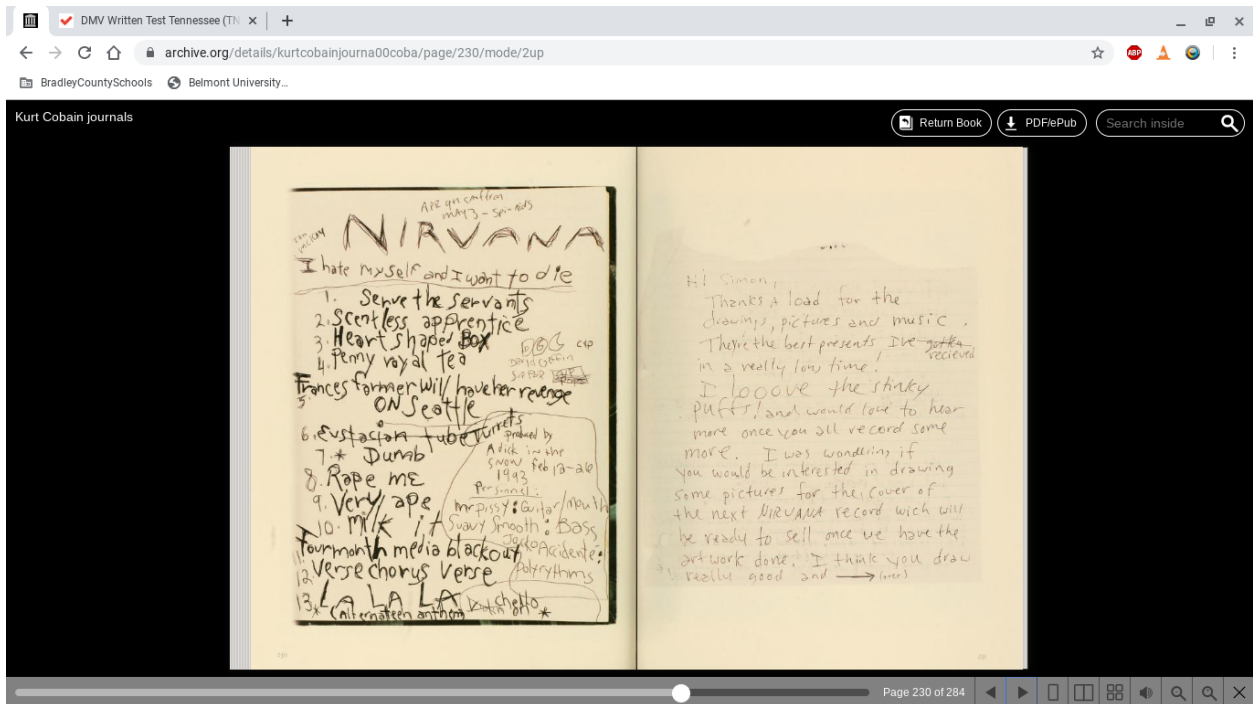 DMV Written Test Tennessee (TN
archive.org/details/kurtcobainjourna00coba/page/230/mode/2up
ABP
BradleyCountySchools
Belmont University…
Kurt Cobain journals
Return Book
PDF/ePub
Search inside
MAY 3 - Spin-offs
NIRVANA
I hate myself and I want to die
1. Serve the servants
2. Scentless apprentice
3. Heart shaped Box
4. Penny royal tea
Frances farmer will have her revenge
5.
ON Seattle
6. Eustacion tube turrets
7.* Dumb
8. Rape me
9. Very ape
10. milk it
11. fourmonth media blackout
12 Verse chorus Verse
13.* LA LA LA
(Alternateen anthem)
produced by
A dick in the
snow Feb 12-26
1993
Personnel:
mr pissy: Guitar/mouth
Suavy Smooth: Bass
Jacko Accidente:
Polyrythms
Hi Simon,
Thanks A load for the
drawings, pictures and music.
They're the best presents I've
recieved
in a really long time!
I looove the stinky
puffs! and would love to hear
more once you all record some
more. I was wondering if
you would be interested in drawing
some pictures for the cover of
the next NIRVANA record wich will
be ready to sell once we have the
art work done. I think you draw
really good and → (over)
Page 230 of 284